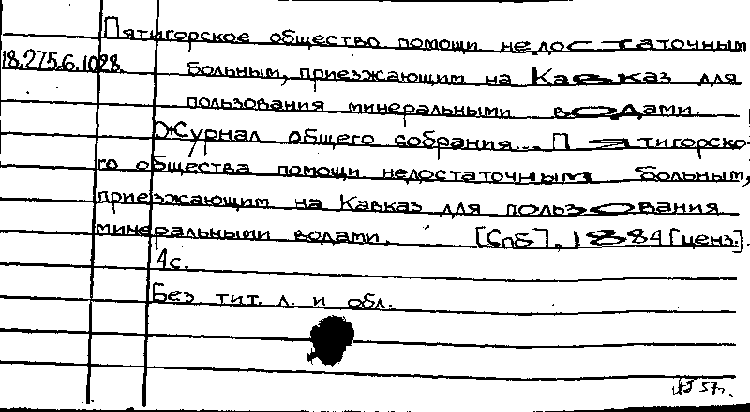 Пятигорское общество помощи недостаточным
18.275.6.1028. больным, приезжающим на Кавказ для
пользования минеральными водами
Журнал общего собрания... Пятигорско-
го общества помощи недостаточным больным,
приезжающим на Кавказ для пользования
минеральными водами. [СПб], 1884 [ценз.].
4с.
Без тит. л. и обл.
57г.